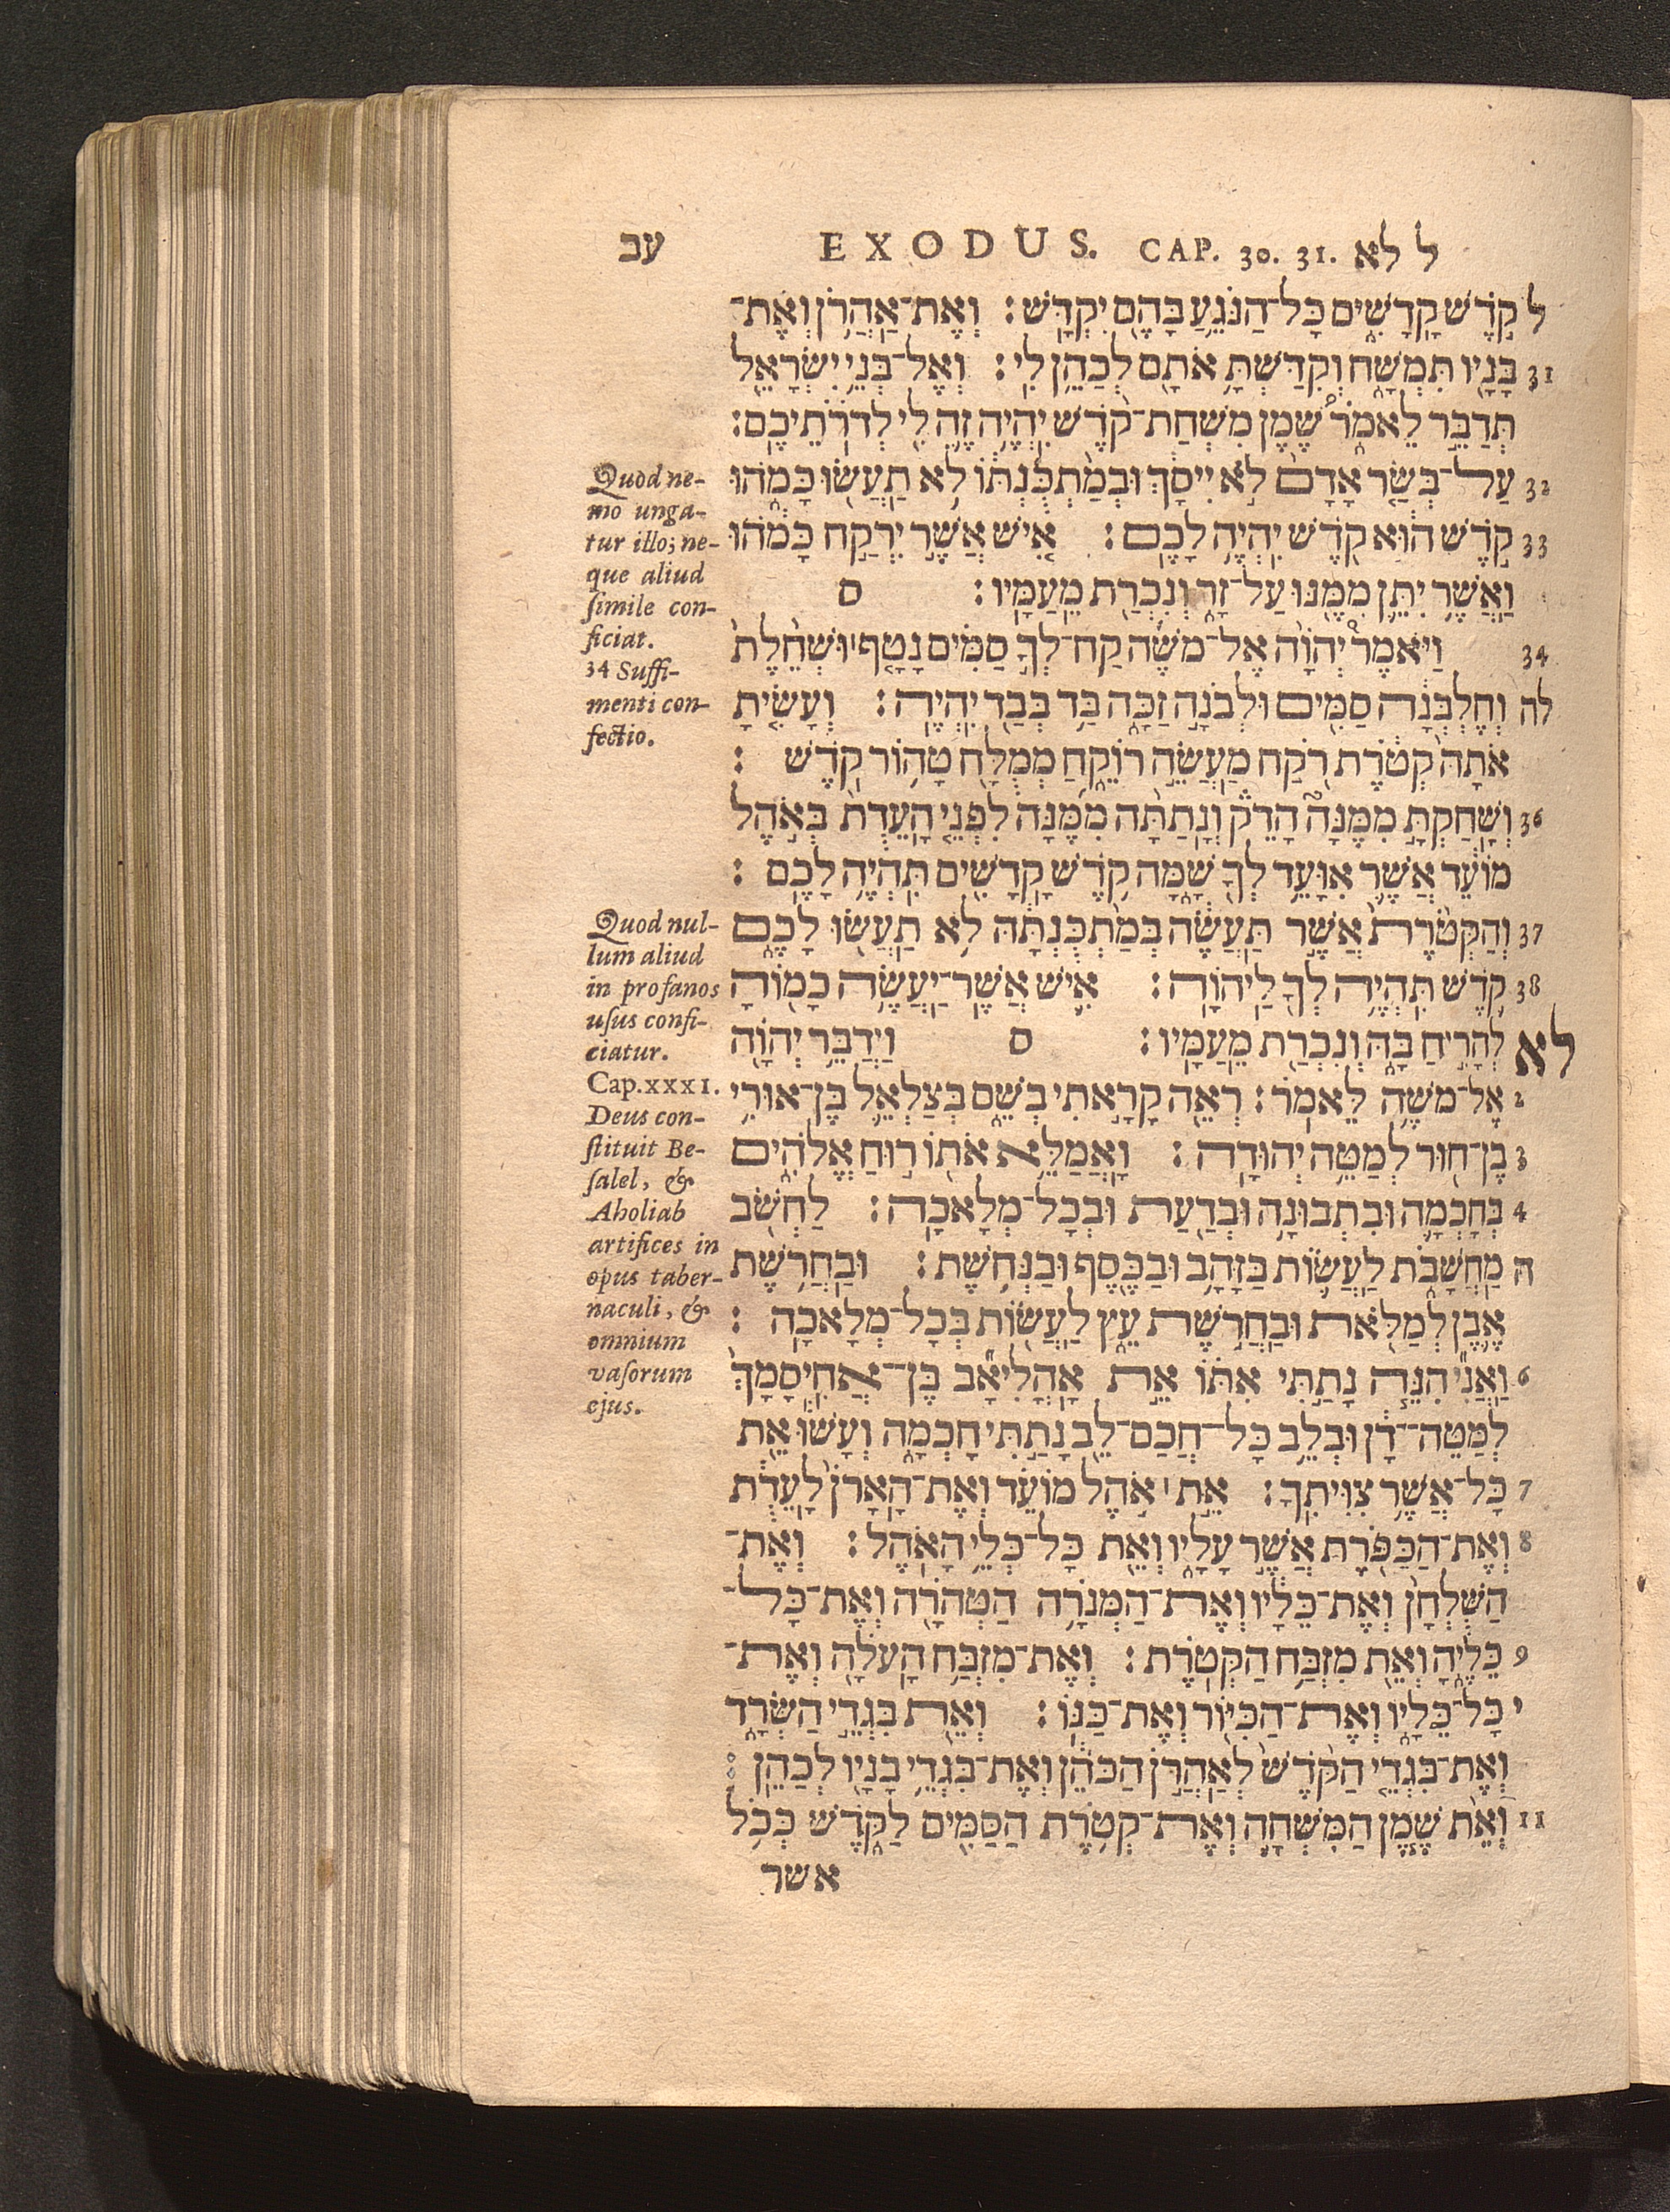 עב EXODUS. CAP. 30. 31. ל לא
ל קֹ֣דֶשׁ קָֽדָשִׁ֑ים כָּל־הַנֹּגֵ֥עַ בָּהֶ֖ם יִקְדָּֽשׁ׃ וְאֶת־אַהֲרֹ֥ן וְאֶת־
31 בָּנָ֖יו תִּמְשָׁ֑ח וְקִדַּשְׁתָּ֥ אֹתָ֖ם לְכַהֵ֥ן לִֽי׃ וְאֶל־בְּנֵ֥י יִשְׂרָאֵ֖ל
תְּדַבֵּ֣ר לֵאמֹ֑ר שֶׁ֠מֶן מִשְׁחַת־קֹ֨דֶשׁ יִהְיֶ֥ה זֶ֛ה לִ֖י לְדֹרֹתֵיכֶֽם׃
32 עַל־בְּשַׂ֤ר אָדָם֙ לֹ֣א יִיסָ֔ךְ וּבְמַ֨תְכֻּנְתּ֔וֹ לֹ֥א תַעֲשׂ֖וּ כָּמֹ֑הוּ
33 קֹ֣דֶשׁ ה֔וּא קֹ֖דֶשׁ יִהְיֶ֥ה לָכֶֽם׃ אִ֚ישׁ אֲשֶׁ֣ר יִרְקַ֣ח כָּמֹ֔הוּ
וַאֲשֶׁ֥ר יִתֵּ֛ן מִמֶּ֖נּוּ עַל־זָ֑ר וְנִכְרַ֖ת מֵעַמָּֽיו׃ ס
34 וַיֹּאמֶר֩ יְהוָ֨ה אֶל־מֹשֶׁ֜ה קַח־לְךָ֣ סַמִּ֗ים נָטָ֤ף׀ וּשְׁחֵ֙לֶת֙
לה וְחֶלְבְּנָ֔ה סַמִּ֖ים וּלְבֹנָ֣ה זַכָּ֑ה בַּ֥ד בְּבַ֖ד יִהְיֶֽה׃ וְעָשִׂ֤יתָ
אֹתָהּ֙ קְטֹ֔רֶת רֹ֖קַח מַעֲשֵׂ֣ה רוֹקֵ֑חַ מְמֻלָּ֖ח טָה֥וֹר קֹֽדֶשׁ׃
36 וְשָֽׁחַקְתָּ֣ מִמֶּנָּה֮ הָדֵק֒ וְנָתַתָּ֨ה מִמֶּ֜נָּה לִפְנֵ֤י הָעֵדֻת֙ בְּאֹ֣הֶל
מוֹעֵ֔ד אֲשֶׁ֛ר אִוָּעֵ֥ד לְךָ֖ שָׁ֑מָּה קֹ֥דֶשׁ קָֽדָשִׁ֖ים תִּהְיֶ֥ה לָכֶֽם׃
37 וְהַקְּטֹ֙רֶת֙ אֲשֶׁ֣ר תַּעֲשֶׂ֔ה בְּמַ֨תְכֻּנְתָּ֔הּ לֹ֥א תַעֲשׂ֖וּ לָכֶ֑ם
38 קֹ֛דֶשׁ תִּהְיֶ֥ה לְךָ֖ לַיהוָֽה׃ אִ֛ישׁ אֲשֶׁר־יַעֲשֶׂ֥ה כָמ֖וֹהָ
לא לְהָרִ֣יחַ בָּ֑הּ וְנִכְרַ֖ת מֵעַמָּֽיו׃ ס וַיְדַבֵּ֥ר יְהוָ֖ה
2 אֶל־מֹשֶׁ֥ה לֵּאמֹֽר׃ רְאֵ֖ה קָרָ֣אתִי בְשֵׁ֑ם בְּצַלְאֵ֛ל בֶּן־אוּרִ֥י
3 בֶן־ח֖וּר לְמַטֵּ֥ה יְהוּדָֽה׃ וָאֲמַלֵּ֥א אֹת֖וֹ ר֣וּחַ אֱלֹהִ֑ים
4 בְּחָכְמָ֛ה וּבִתְבוּנָ֥ה וּבְדַ֖עַת וּבְכָל־מְלָאכָֽה׃ לַחְשֹׁ֖ב
ה מַחֲשָׁבֹ֑ת לַעֲשׂ֛וֹת בַּזָּהָ֥ב וּבַכֶּ֖סֶף וּבַנְּחֹֽשֶׁת׃ וּבַחֲרֹ֥שֶׁת
אֶ֛בֶן לְמַלֹּ֖את וּבַחֲרֹ֣שֶׁת עֵ֑ץ לַעֲשׂ֖וֹת בְּכָל־מְלָאכָֽה׃
6 וַאֲנִ֞י הִנֵּ֧ה נָתַ֣תִּי אִתּ֗וֹ אֵ֣ת אָהֳלִיאָ֞ב בֶּן־אֲחִֽיסָמָךְ֙
לְמַטֵּה־דָ֔ן וּבְלֵ֥ב כָּל־חֲכַם־לֵ֖ב נָתַ֣תִּי חָכְמָ֑ה וְעָשׂ֕וּ אֵ֖ת
7 כָּל־אֲשֶׁ֥ר צִוִּיתִֽךָ׃ אֵ֣ת׀ אֹ֣הֶל מוֹעֵ֗ד וְאֶת־הָֽאָרֹן֙ לָֽעֵדֻ֔ת
8 וְאֶת־הַכַּפֹּ֖רֶת אֲשֶׁ֣ר עָלָ֑יו וְאֵ֖ת כָּל־כְּלֵ֥י הָאֹֽהֶל׃ וְאֶת־
הַשֻּׁלְחָן֙ וְאֶת־כֵּלָ֔יו וְאֶת־הַמְּנֹרָ֥ה הַטְּהֹרָ֖ה וְאֶת־כָּל־
9 כֵּלֶ֑יהָ וְאֵ֖ת מִזְבַּ֥ח הַקְּטֹֽרֶת׃ וְאֶת־מִזְבַּ֥ח הָעֹלָ֖ה וְאֶת־
י כָּל־כֵּלָ֑יו וְאֶת־הַכִּיּ֖וֹר וְאֶת־כַּנּֽוֹ׃ וְאֵ֖ת בִּגְדֵ֣י הַשְּׂרָ֑ד
וְאֶת־בִּגְדֵ֤י הַקֹּ֙דֶשׁ֙ לְאַהֲרֹ֣ן הַכֹּהֵ֔ן וְאֶת־בִּגְדֵ֥י בָנָ֖יו לְכַהֵֽן׃
11 וְאֵ֨ת שֶׁ֧מֶן הַמִּשְׁחָ֛ה וְאֶת־קְטֹ֥רֶת הַסַּמִּ֖ים לַקֹּ֑דֶשׁ כְּכֹ֥ל
אשר
Quod ne-
mo unga-
tur illo; ne-
que aliud
simile con-
ficiat.
34 Suffi-
menti con-
fectio.
Quod nul-
lum aliud
in profanos
usus confi-
ciatur.
Cap. XXXI.
Deus con-
stituit Be-
salel, &
Aholiab
artifices in
opus taber-
naculi, &
omnium
vasorum
ejus.